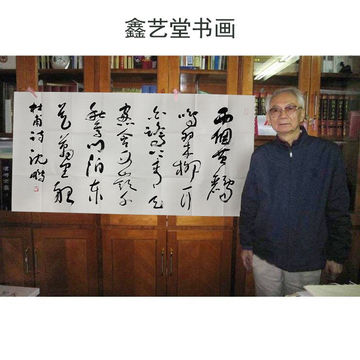 鑫艺堂书画
两個黄鹂
鸣翠柳一行
白鹭上青天
窗含西岭千
秋雪门泊东
吴萬里船
杜甫诗 沈鹏